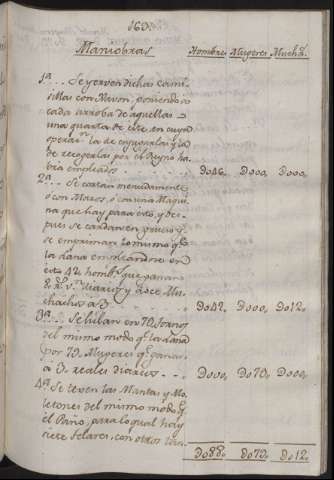 Maniobras Hombres Mugeres Mucha.
1ª... Se yerven dichas
cada arroba de aquellas
una quarta de este, en cuya
de recogerlas por el Reyno ha
bra empleados 0046. 0000. 0000.
2ª... Se cortan menudamente
ó con Mazos, ó con una Maqui
na que hay para esto, y des
pues se cardan en grueso y
se empriman lo mismo qe.
la Lana empleandose en
esto 42 hombs. que ganan
chachos a 3 0042. 0000. 0012.
3ª... Se hilan en 70 tornos
del mismo modo qe. la Lana
por 70 Mugeres qe. ganan
á 3. reales diarios 0000. 0070. 0000.
4ª Se texen las Mantas y Mo
letones del mismo modo qe.
el Paño, para lo qual hay
siete telares, con otros tan
0088. 0070. 0012